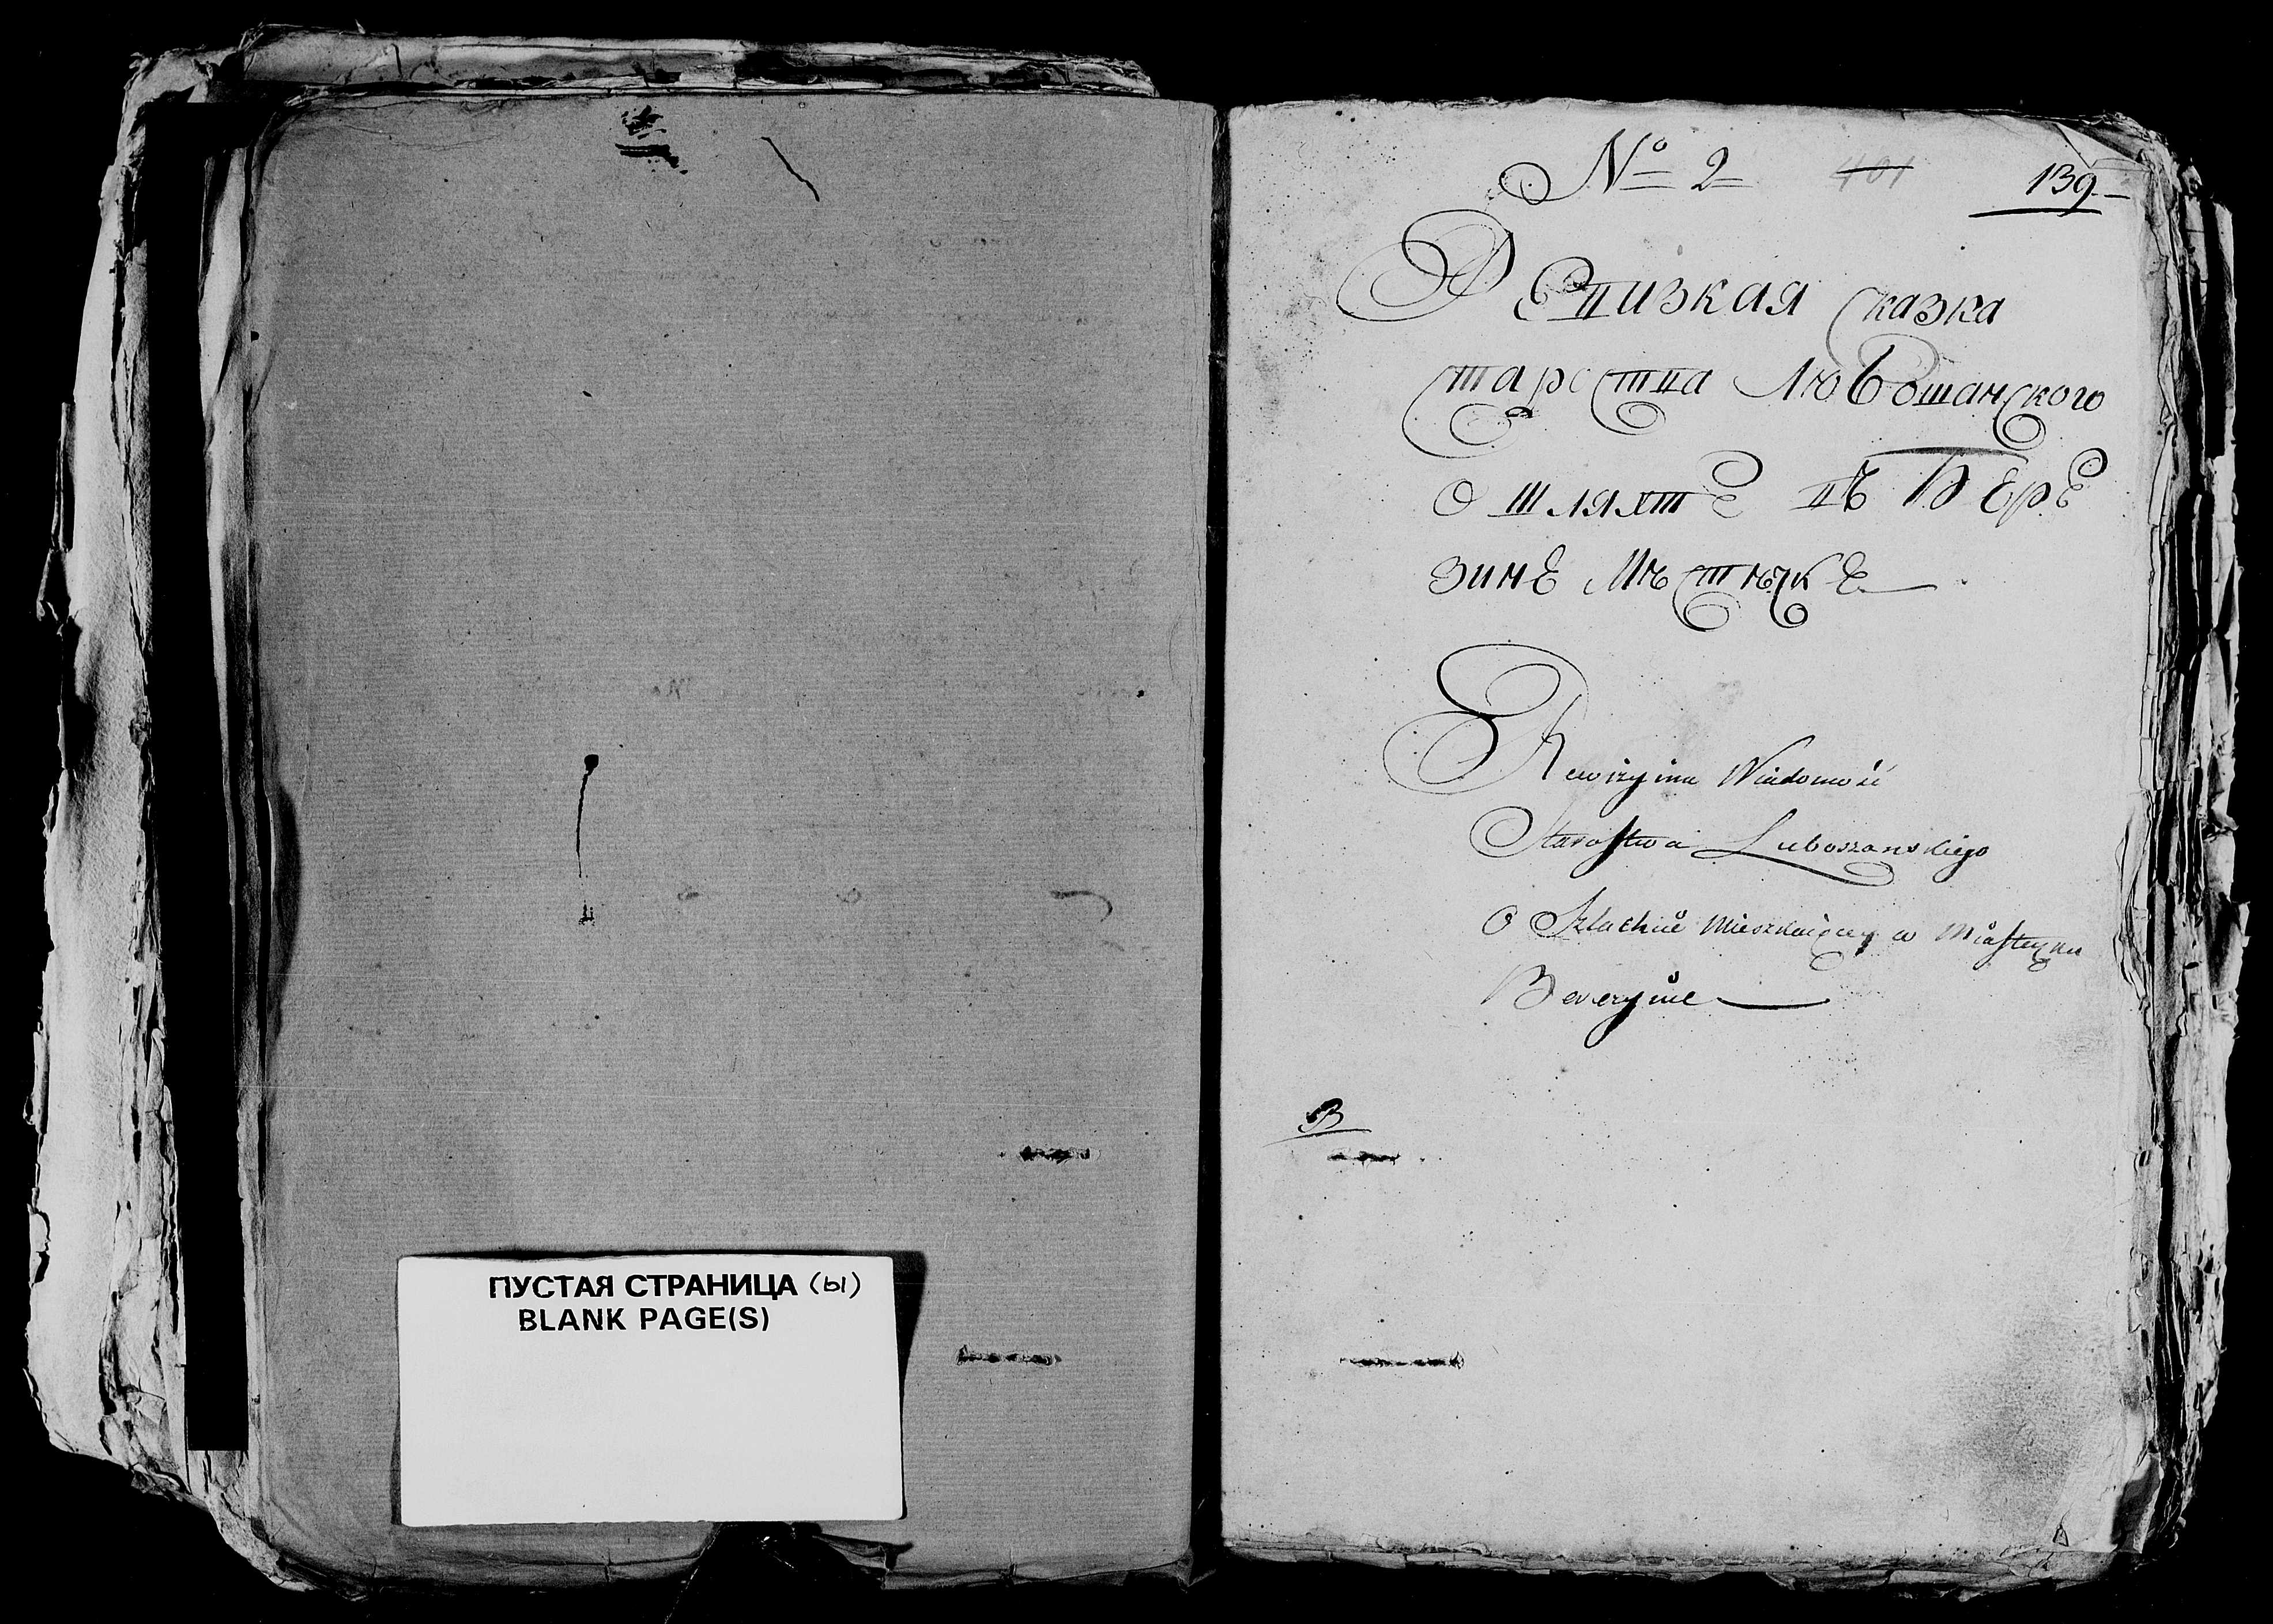 ПУСТАЯ СТРАНИЦА (ы)
BLANK PAGE(S)
№ 2 401 139
Ревизкая сказка
Староства Любошанского
О шляхте въ Бере
зине Мѣстѣчке
Rewizyina Wiadomość
Starostwa Luboszanskiego
O Szlachcie Mieszkaiącey w Miasteczku
Berezynie
В